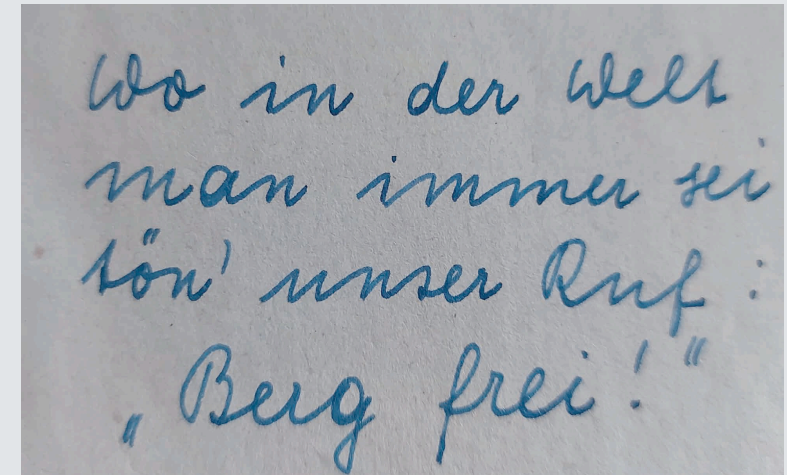 Wo in der Welt
man immer sei
tön' unser Ruf :
„Berg frei!“